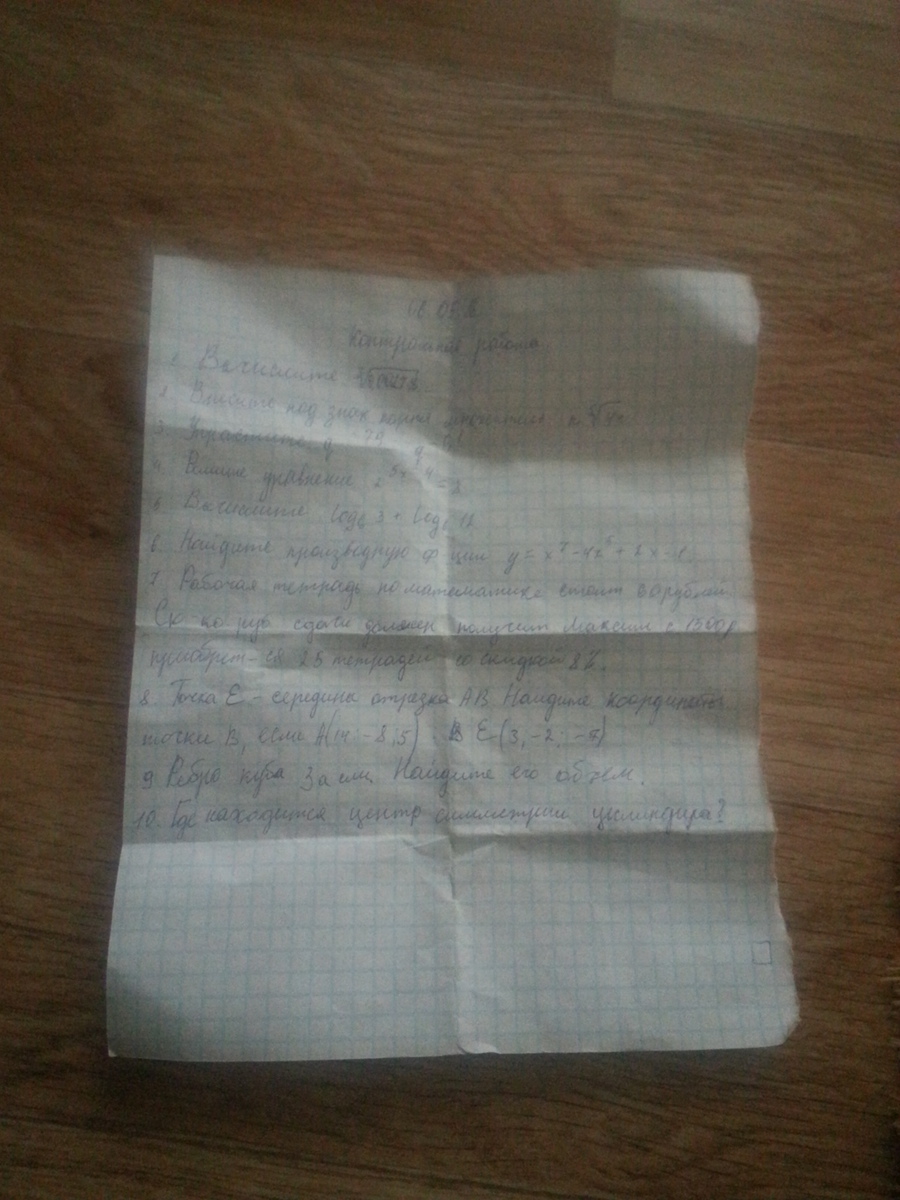 Контрольная работа
Вычислите
2. Внесите под знак корня множитель
3. Упростите
4. Решите уравнение
5. Вычислите log₆ 3 + log₆ 12
6. Найдите производную ф-ции y = x⁷ - 4x⁵ + 2x - 1
7. Рабочая тетрадь по математике стоит рублей
Ск-ко руб сдачи должен получит Максим с 1500р
приобрет-ся 25 тетрадей со скидкой 8%.
8. Точка E - середина отрезка AB. Найдите координаты
точки B, если A(14; -8; 5) E (3; -2; -7)
9 Ребро куба 3а см. Найдите его объем.
10. Где находится центр симметрии цилиндра?